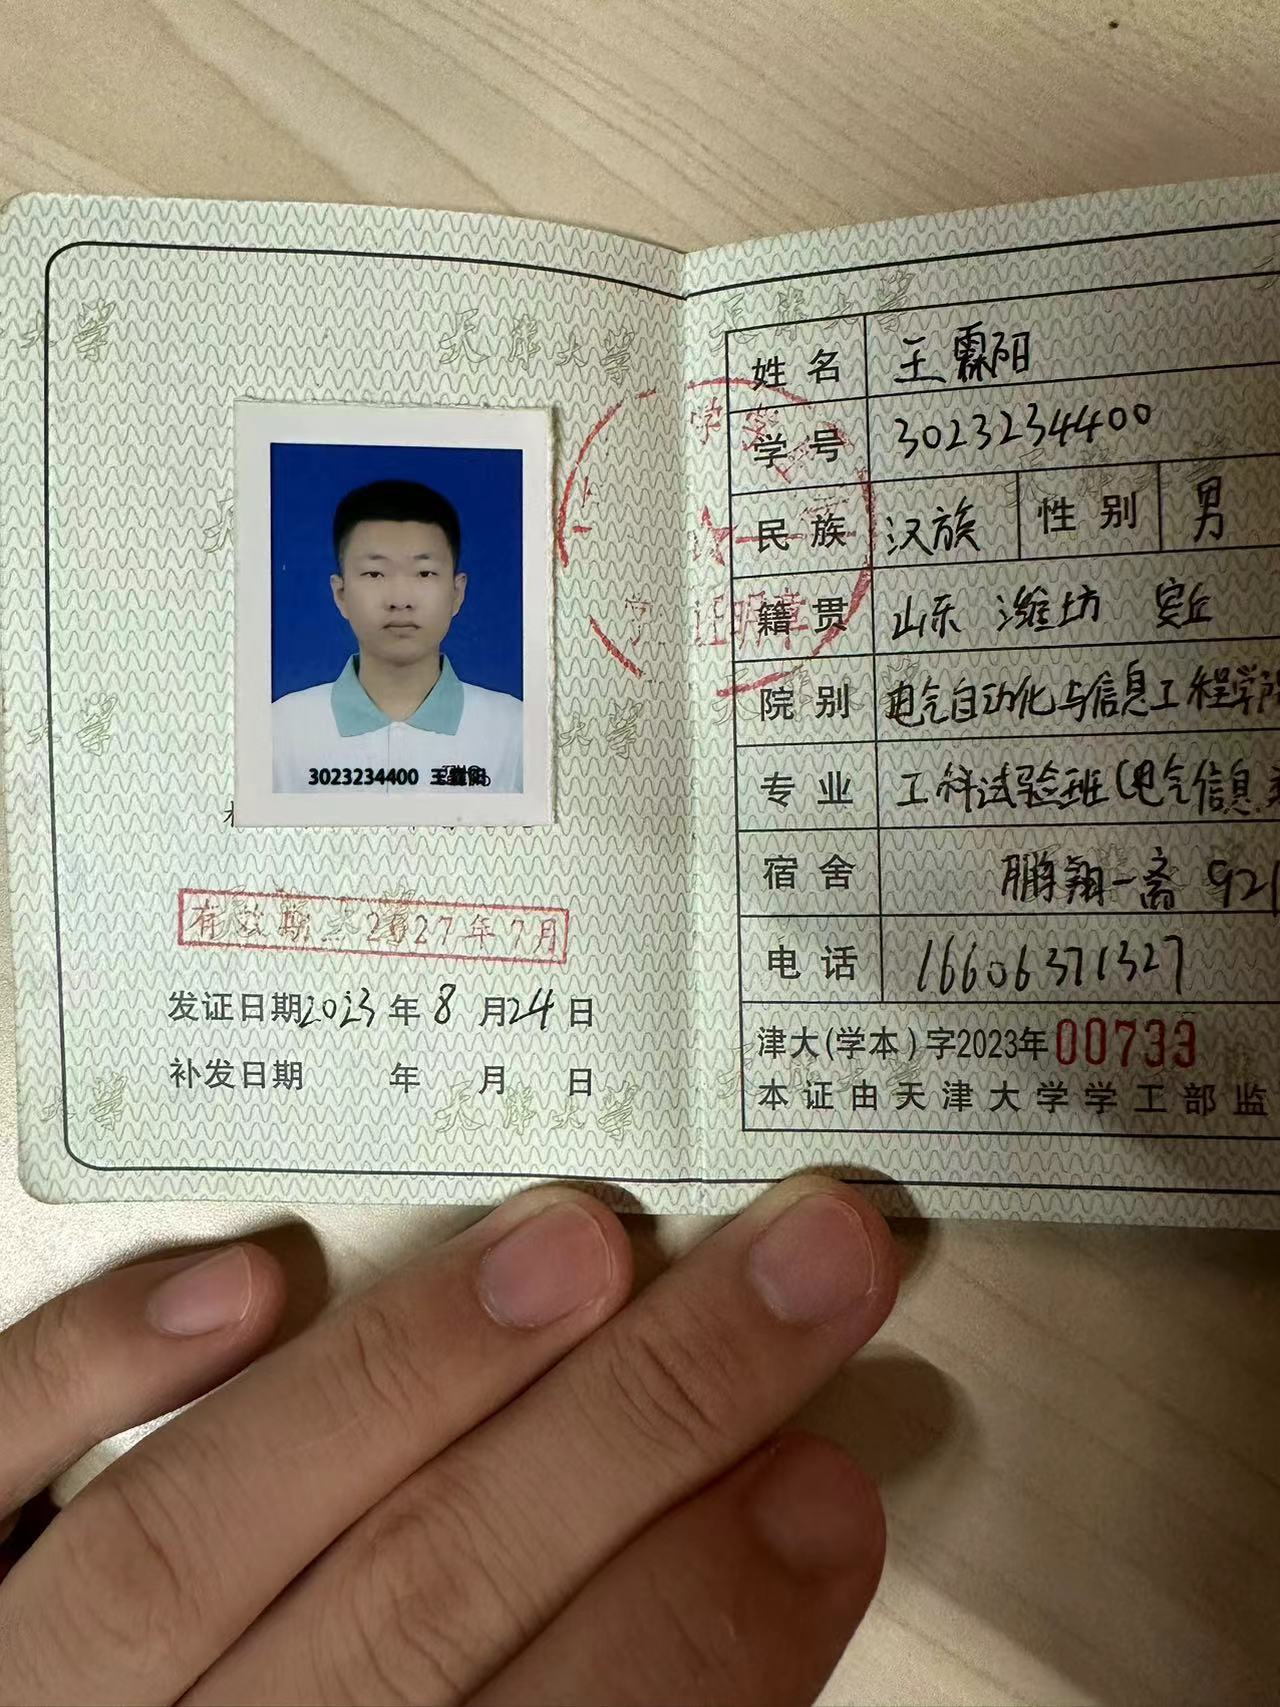 3023234400
有效期：2027年7月
发证日期2023年8月24日
补发日期 年 月 日
姓名 王霖阳
学号 3023234400
民族 汉族 性别 男
籍贯 山东 潍坊
院别 电气自动化与信息工程学院
专业 工科试验班(电气信息
宿舍 鹏翔一斋 921
电话 16606371327
津大(学本)字2023年00733
本证由天津大学学工部监
天津大学